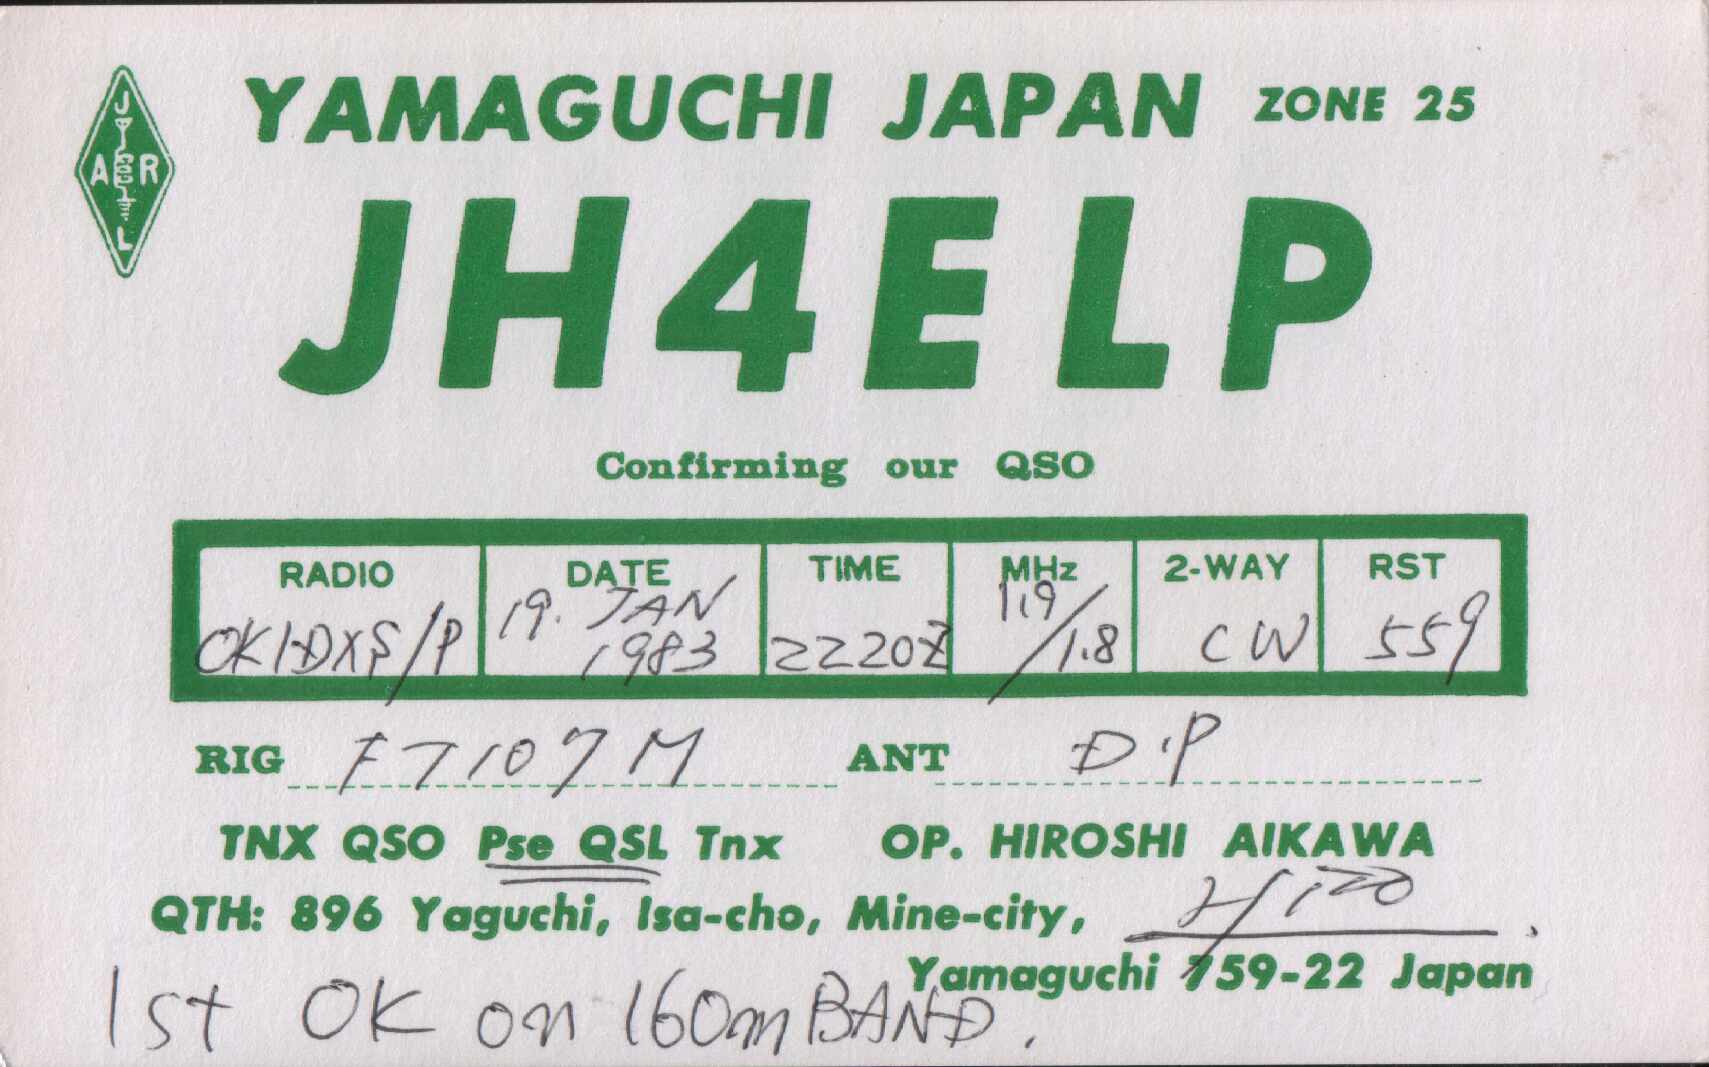 YAMAGUCHI JAPAN ZONE 25
J
A R
L
JH4ELP
Confirming our QSO
RADIO DATE TIME MHz 2-WAY RST
OK1DXS/P 19. JAN 1983 2220Z 1.9/1.8 CW 559
RIG FT107M ANT D.P
TNX QSO Pse QSL Tnx OP. HIROSHI AIKAWA
QTH: 896 Yaguchi, Isa-cho, Mine-city,
Yamaguchi 759-22 Japan
1st OK on 160m BAND.